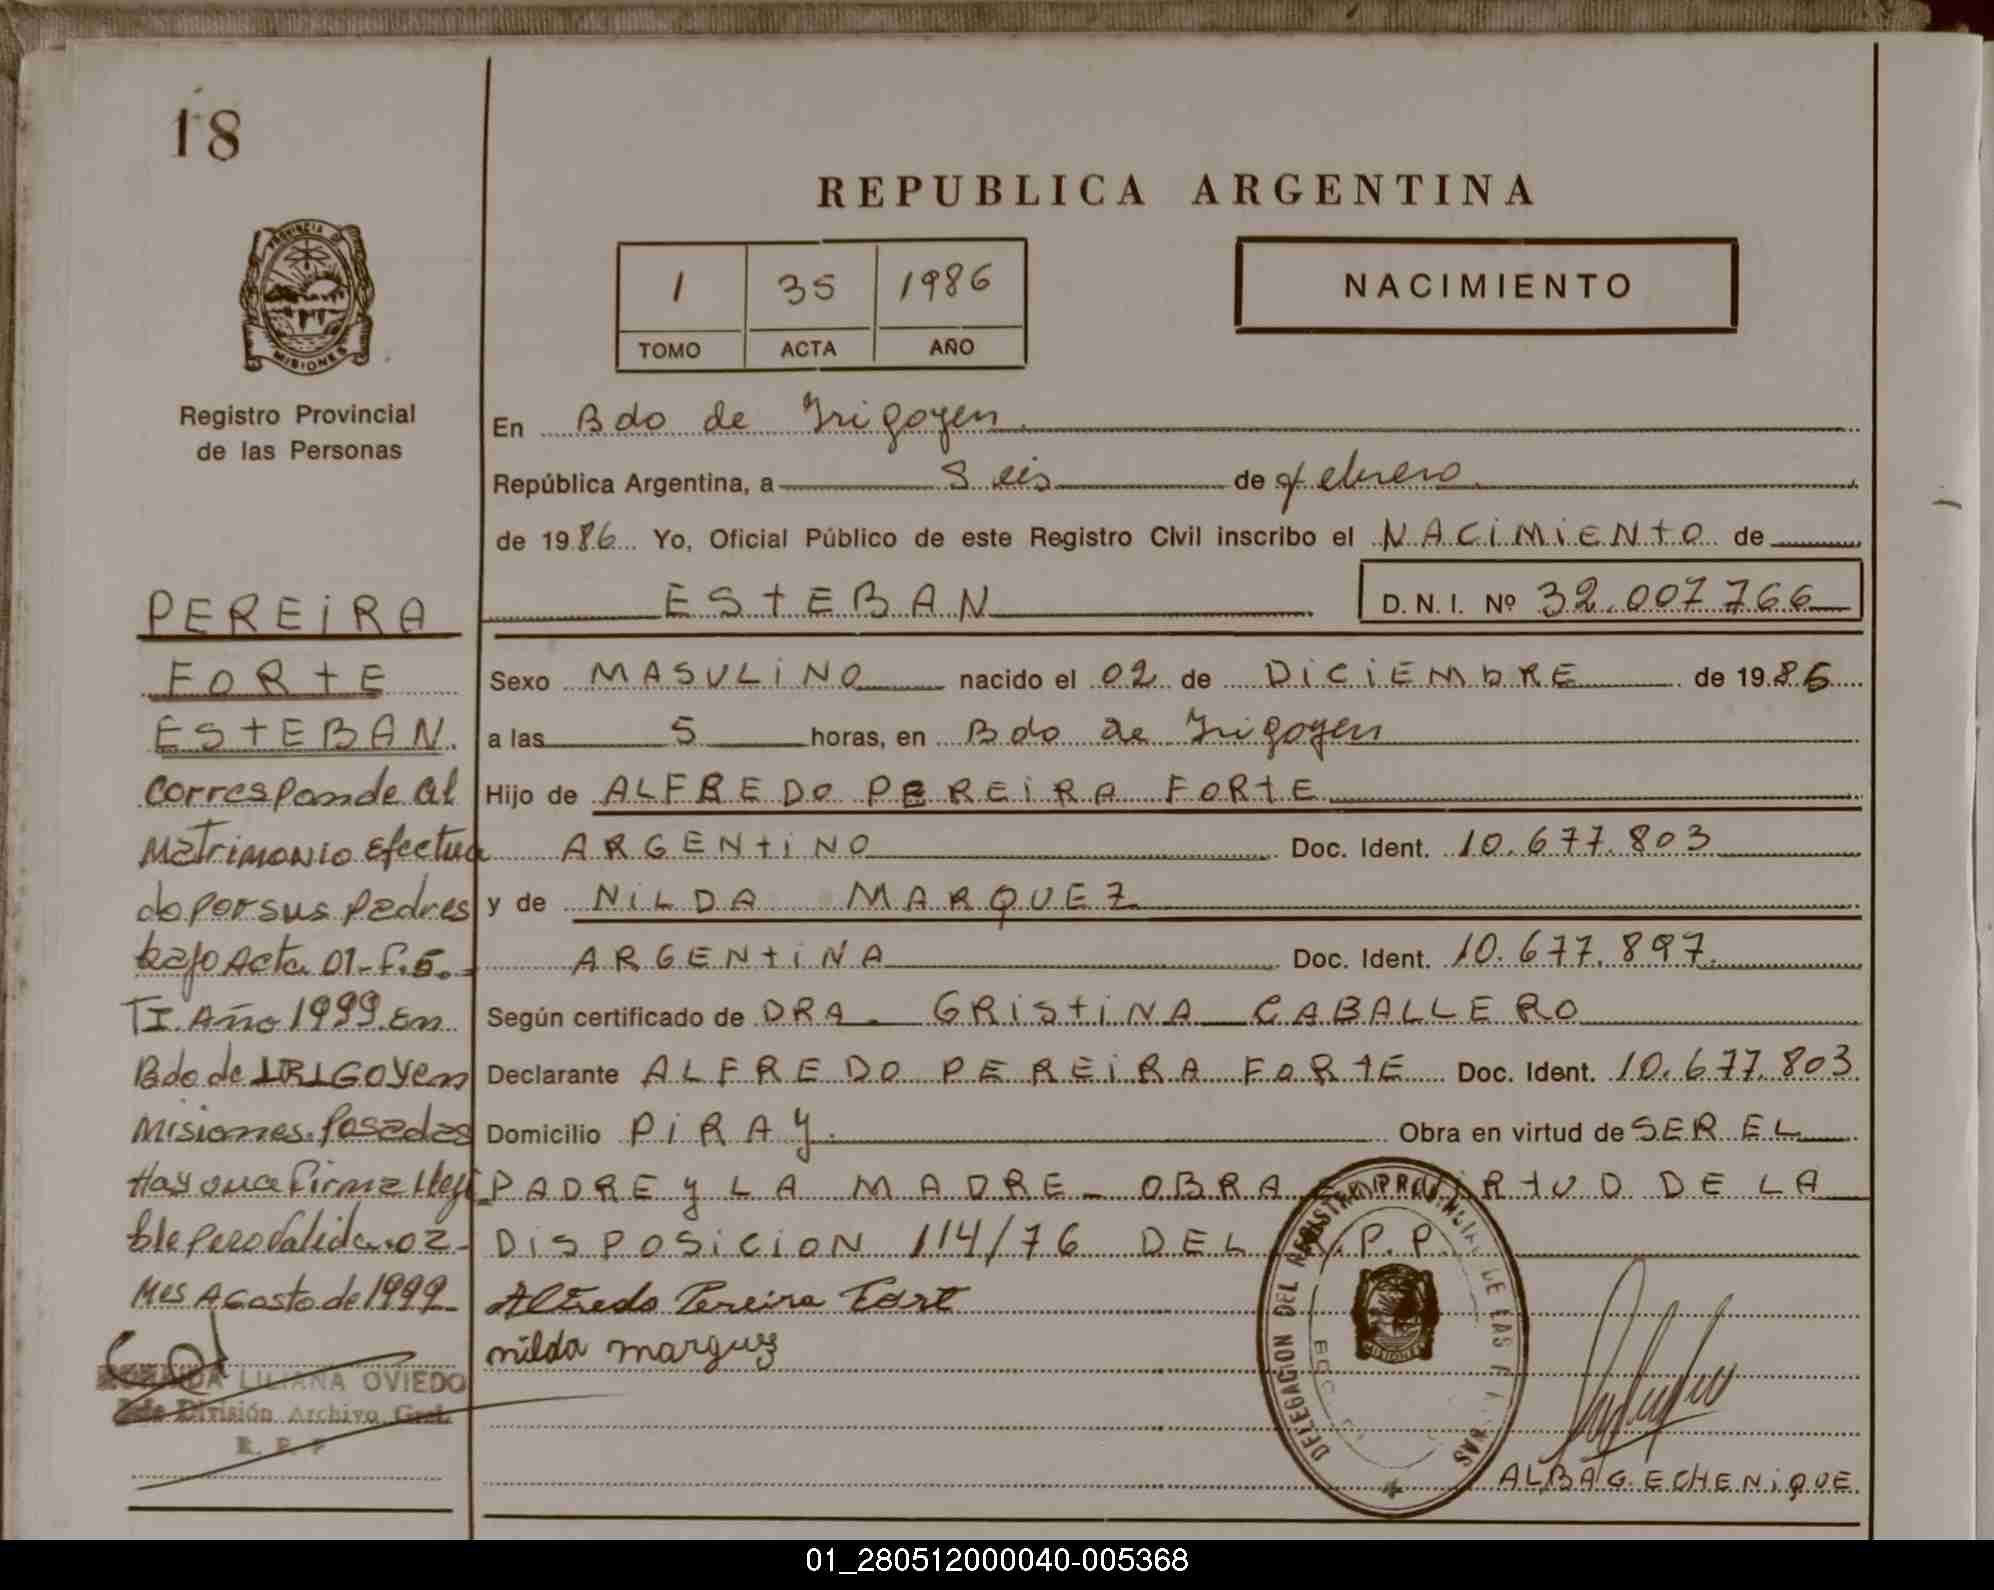 18
REPUBLICA ARGENTINA
PROVINCIA DE
MISIONES
1 35 1986
TOMO ACTA AÑO
NACIMIENTO
Registro Provincial
de las Personas
En Bdo de Irigoyen
República Argentina, a Seis de febrero
de 1986 Yo, Oficial Público de este Registro Civil inscribo el NACIMIENTO de
ESTEBAN D.N.I. Nº 32.007.766
Sexo MASULINO nacido el 02 de DICIEMBRE de 1986
a las 5 horas, en Bdo de Irigoyen
Hijo de ALFREDO PEREIRA FORTE
ARGENTINO Doc. Ident. 10.677.803
y de NILDA MARQUEZ
ARGENTINA Doc. Ident. 10.677.897
Según certificado de DRA. GRISTINA CABALLERO
Declarante ALFREDO PEREIRA FORTE Doc. Ident. 10.677.803
Domicilio PIRAY. Obra en virtud de SER EL
PADRE y LA MADRE OBRA VIRTUD DE LA
DISPOSICION 114/76 DEL R.P.P.
Alfredo Pereira Fort
nilda marquez
DELEGACION DEL REGISTRO PROVINCIAL DE LAS PERSONAS
MISIONES
ALBA G. ECHENIQUE
PEREIRA
FORTE
ESTEBAN.
Corresponde al
Matrimonio efectua
do por sus padres
bajo Acta 01-F.5.-
TI. Año 1999 En
Bdo de IRIGOYEN
Misiones. Posadas
Hay una firma ilegi
ble pero valida. 02-
Mes Agosto de 1999
LILIANA OVIEDO
División Archivo Gral.
R. P. P
01_280512000040-005368